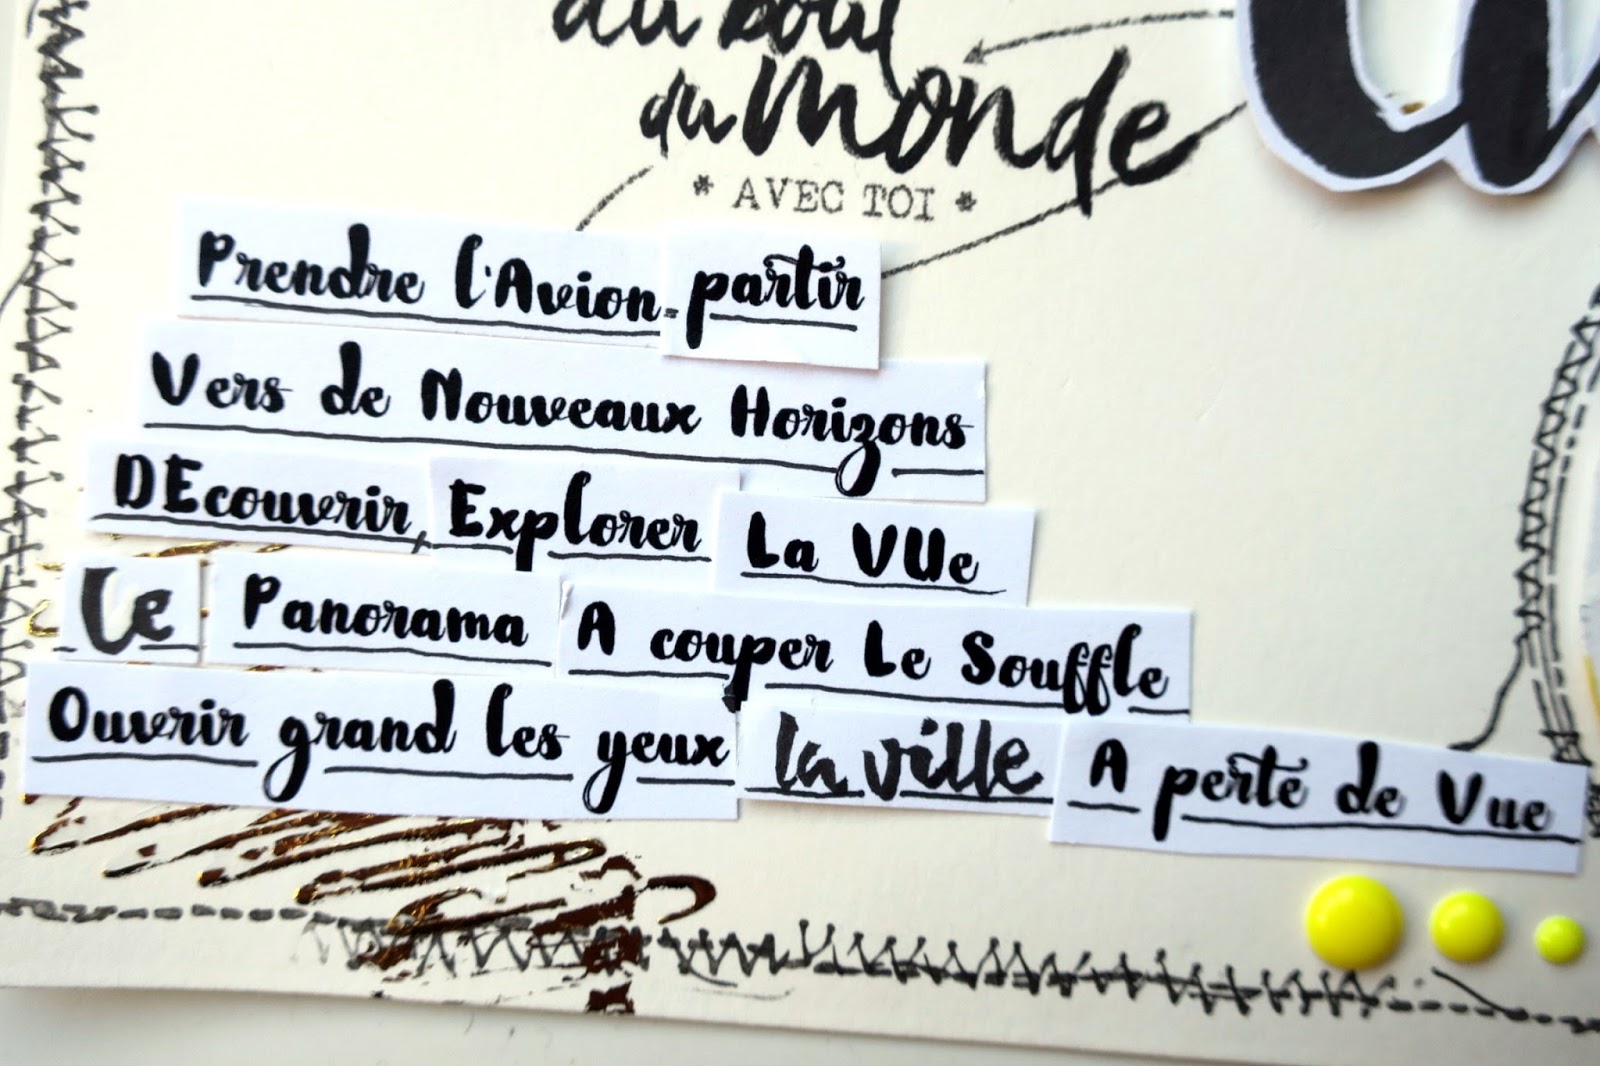 au bout
du monde
* AVEC TOI *
Prendre l'Avion - partir
Vers de Nouveaux Horizons
DEcouvrir, Explorer La VUe
Le Panorama A couper Le Souffle
Ouvrir grand les yeux la ville A perte de Vue